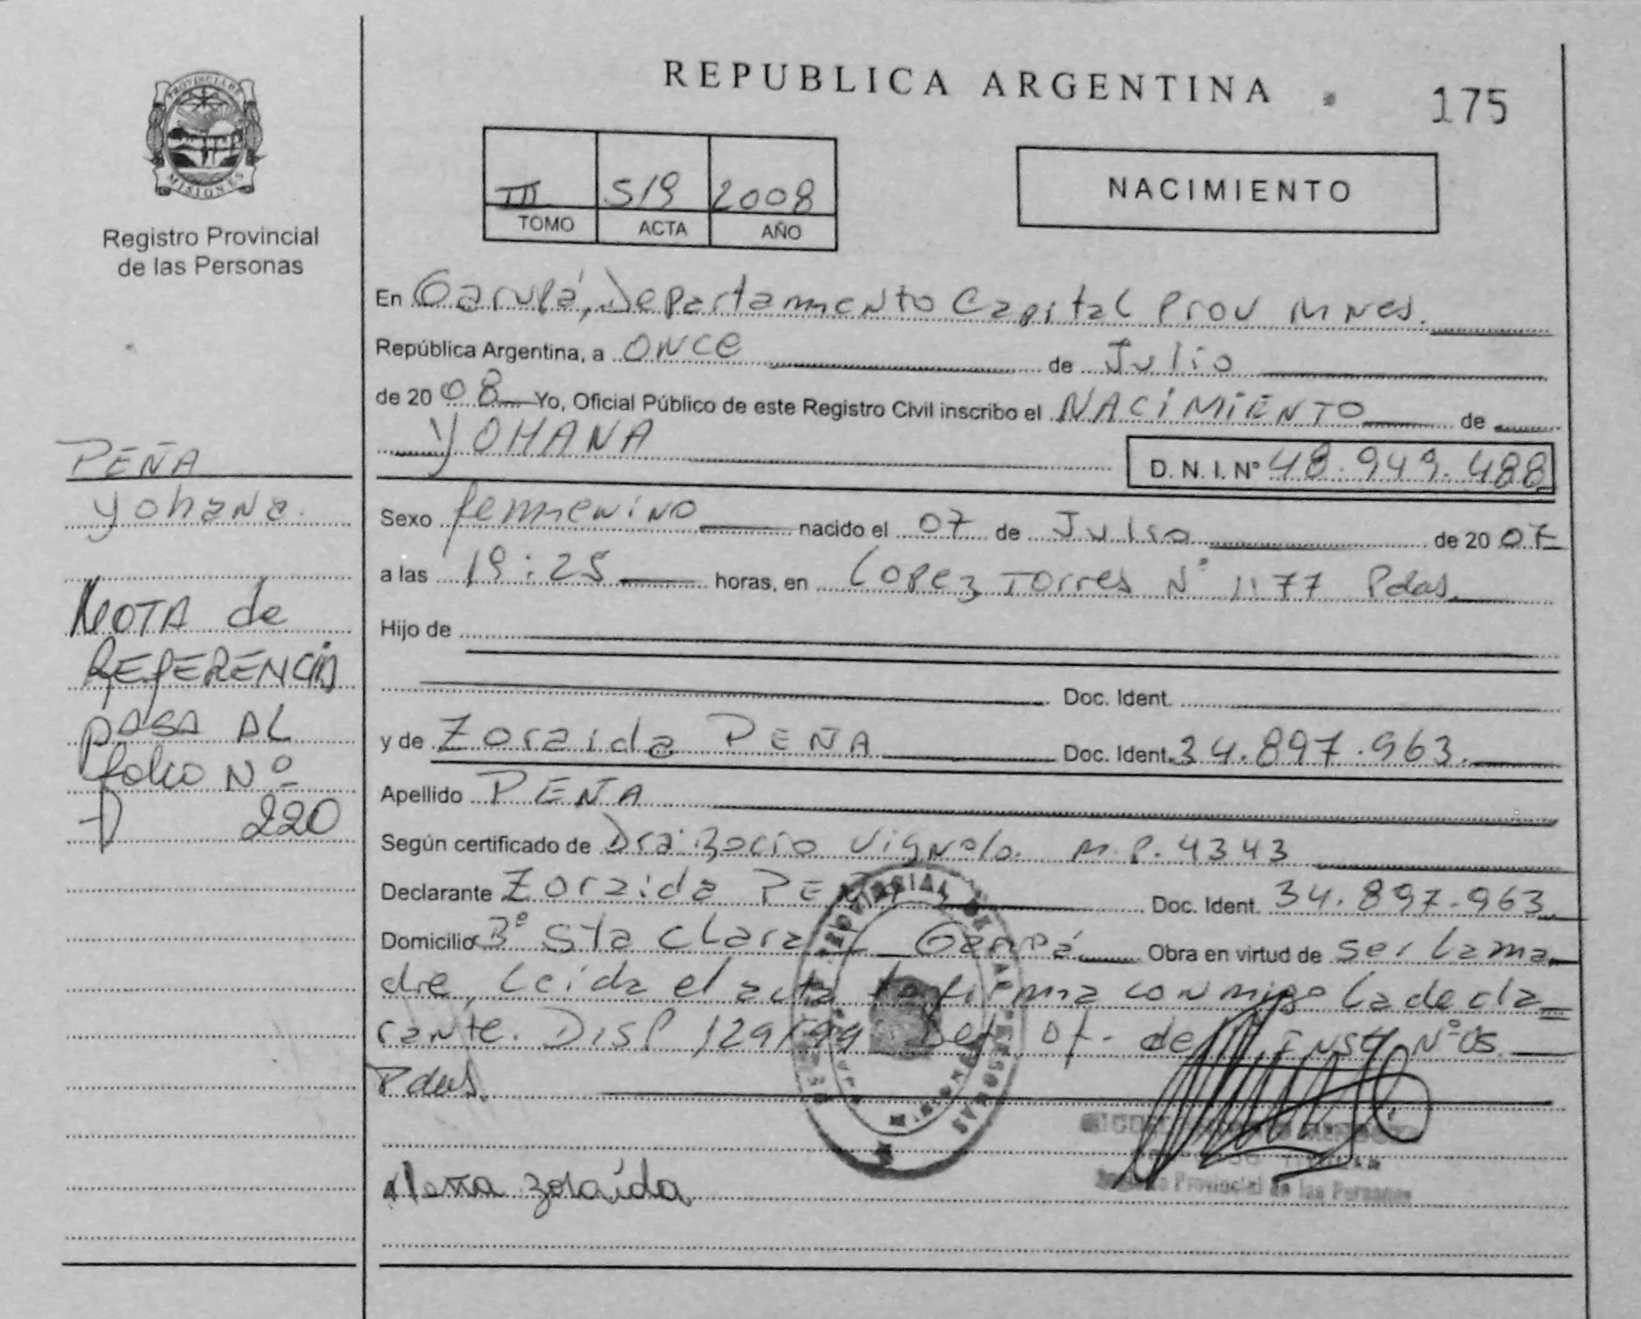 REPUBLICA ARGENTINA
175
PROVINCIA DE
MISIONES
Registro Provincial
de las Personas
III 519 2008
TOMO ACTA AÑO
NACIMIENTO
En Garupá, Departamento Capital Prov Mnes.
República Argentina, a once de Julio
de 2008 Yo, Oficial Público de este Registro Civil inscribo el NACIMIENTO de
YOHANA
D. N. I. Nº 48.949.488
Sexo femenino nacido el 07 de Julio de 2007
a las 19:25 horas, en Lopez Torres Nº 1177 Pdas.
Hijo de
Doc. Ident.
y de Zoraida PEÑA Doc. Ident. 34.897.963.
Apellido PEÑA
Según certificado de Dra: Rocio Vignolo. M.P. 4343
Declarante Zoraida PEÑA Doc. Ident. 34.897.963
Domicilio Bº Sta Clara Garupá Obra en virtud de ser la ma
dre, Leida el acta la firma conmigo la decla
rante. DISP 129/99 Of. de Nº 05
Pdas.
Peña Zoraida
Registro Provincial de las Personas
PEÑA
Yohana.
NOTA de
REFERENCIA
PASA AL
folio Nº
220